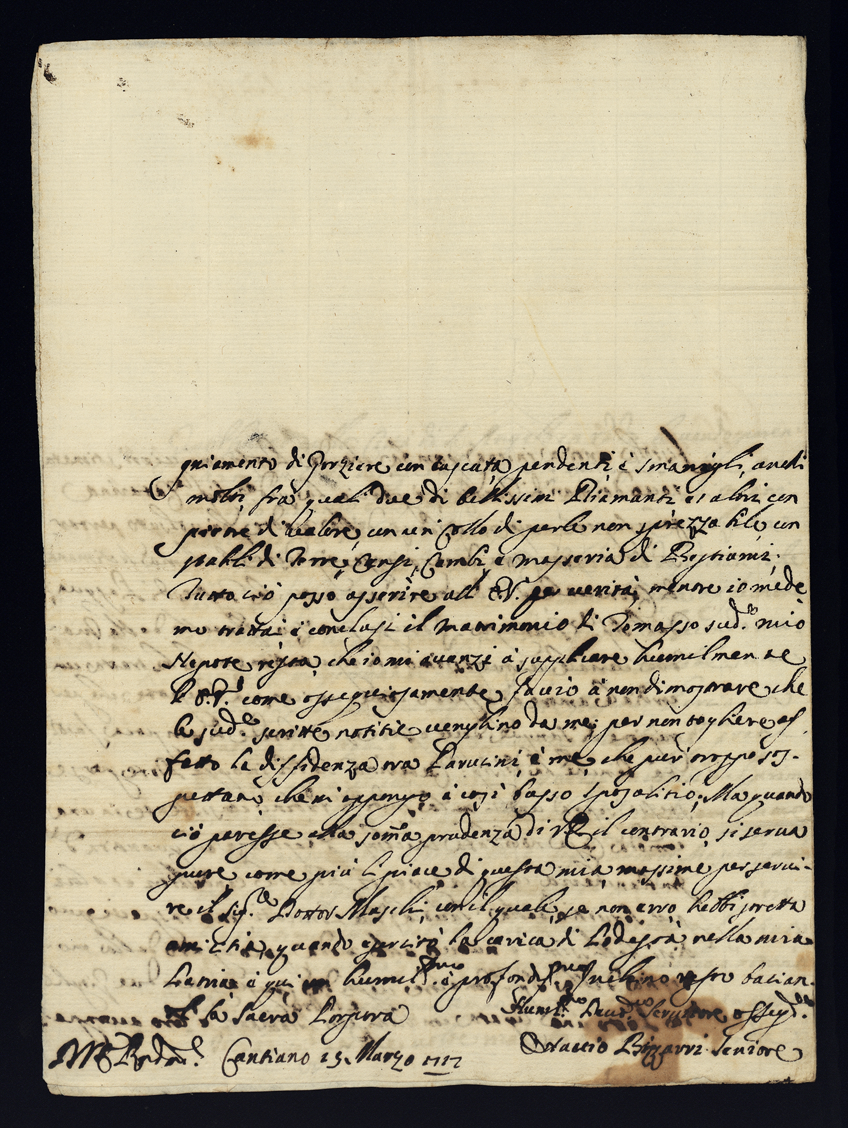 quiamento di Gorziere con cascata, pendenti, e smanigli, anelli
molti, frà quali due di bellissimi Diamanti, et altri con
pietre di valore, con un Collo di perle non sprezzabile, con
stabili di Terre, Censi, Cambi, e masseria di Bestiami.
Tutto ciò posso asserire all' per verità, mentre io mede
mo trattai, e conclusi il matrimonio di Tomasso sud.º mio
Nepote, resta, che io mi avanzi à supplicare humilmente
come ossequiosamente faccio à non dimostrare che
le sud.e scritte notitie venghino da me, per non togliere af
fatto la diffidenza tra Parucini, e me, che pur troppo sos-
pettano che mi oppongo à così basso sposalitio; Ma quando
ciò paresse alla somã prudenza di il contrario, si serva
pure come più li piace di questa mia, massime per servi-
re il Sig.r Dottor Maschi, con il quale, se non erro, hebbi stretta
amicitia, quando esercitò la carica di Podestà nella mia
Patria, e qui humil.mo e profondis.mo inchino resto bacian-
la Sacra Porpora
Humil.mo Devot.mo Servitore osseq.mo
Cantiano 15 Marzo 1717 Oratio Bizzarri Seniore